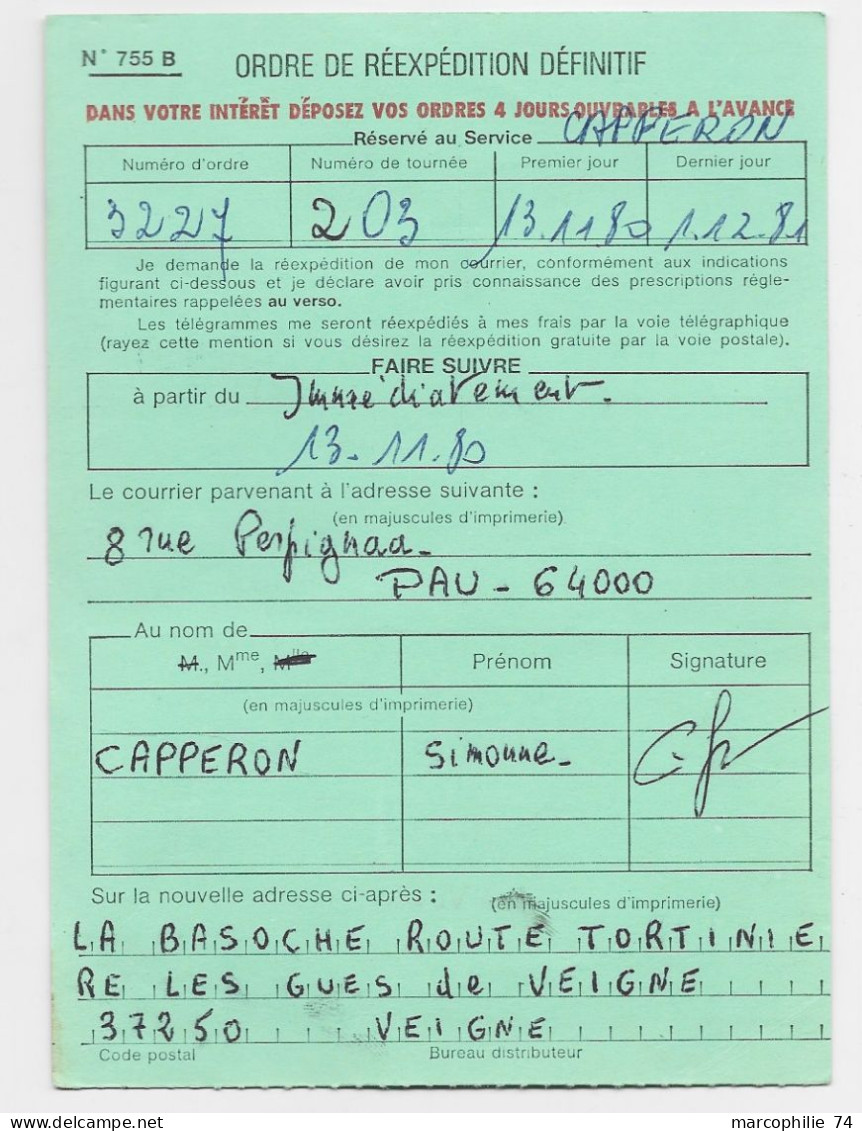 N° 755 B
ORDRE DE RÉEXPÉDITION DÉFINITIF
DANS VOTRE INTÉRÊT DÉPOSEZ VOS ORDRES 4 JOURS OUVRABLES A L'AVANCE
Réservé au Service CAPPERON
Numéro d'ordre Numéro de tournée Premier jour Dernier jour
3227 203 13.11 80 1.12.81
Je demande la réexpédition de mon courrier, conformément aux indications
figurant ci-dessous et je déclare avoir pris connaissance des prescriptions régle-
mentaires rappelées au verso.
Les télégrammes me seront réexpédiés à mes frais par la voie télégraphique
(rayez cette mention si vous désirez la réexpédition gratuite par la voie postale).
FAIRE SUIVRE
à partir du Immédiatement.
13.11.80
Le courrier parvenant à l'adresse suivante :
(en majuscules d'imprimerie)
8 rue Perpignaa-
PAU - 64000
Au nom de
M., Mme, Mlle Prénom Signature
(en majuscules d'imprimerie)
CAPPERON Simonne-
Sur la nouvelle adresse ci-après : (en majuscules d'imprimerie)
LA BASOCHE ROUTE TORTINIE
RE LES GUES de VEIGNE
37250 VEIGNE
Code postal Bureau distributeur
marcophilie 74